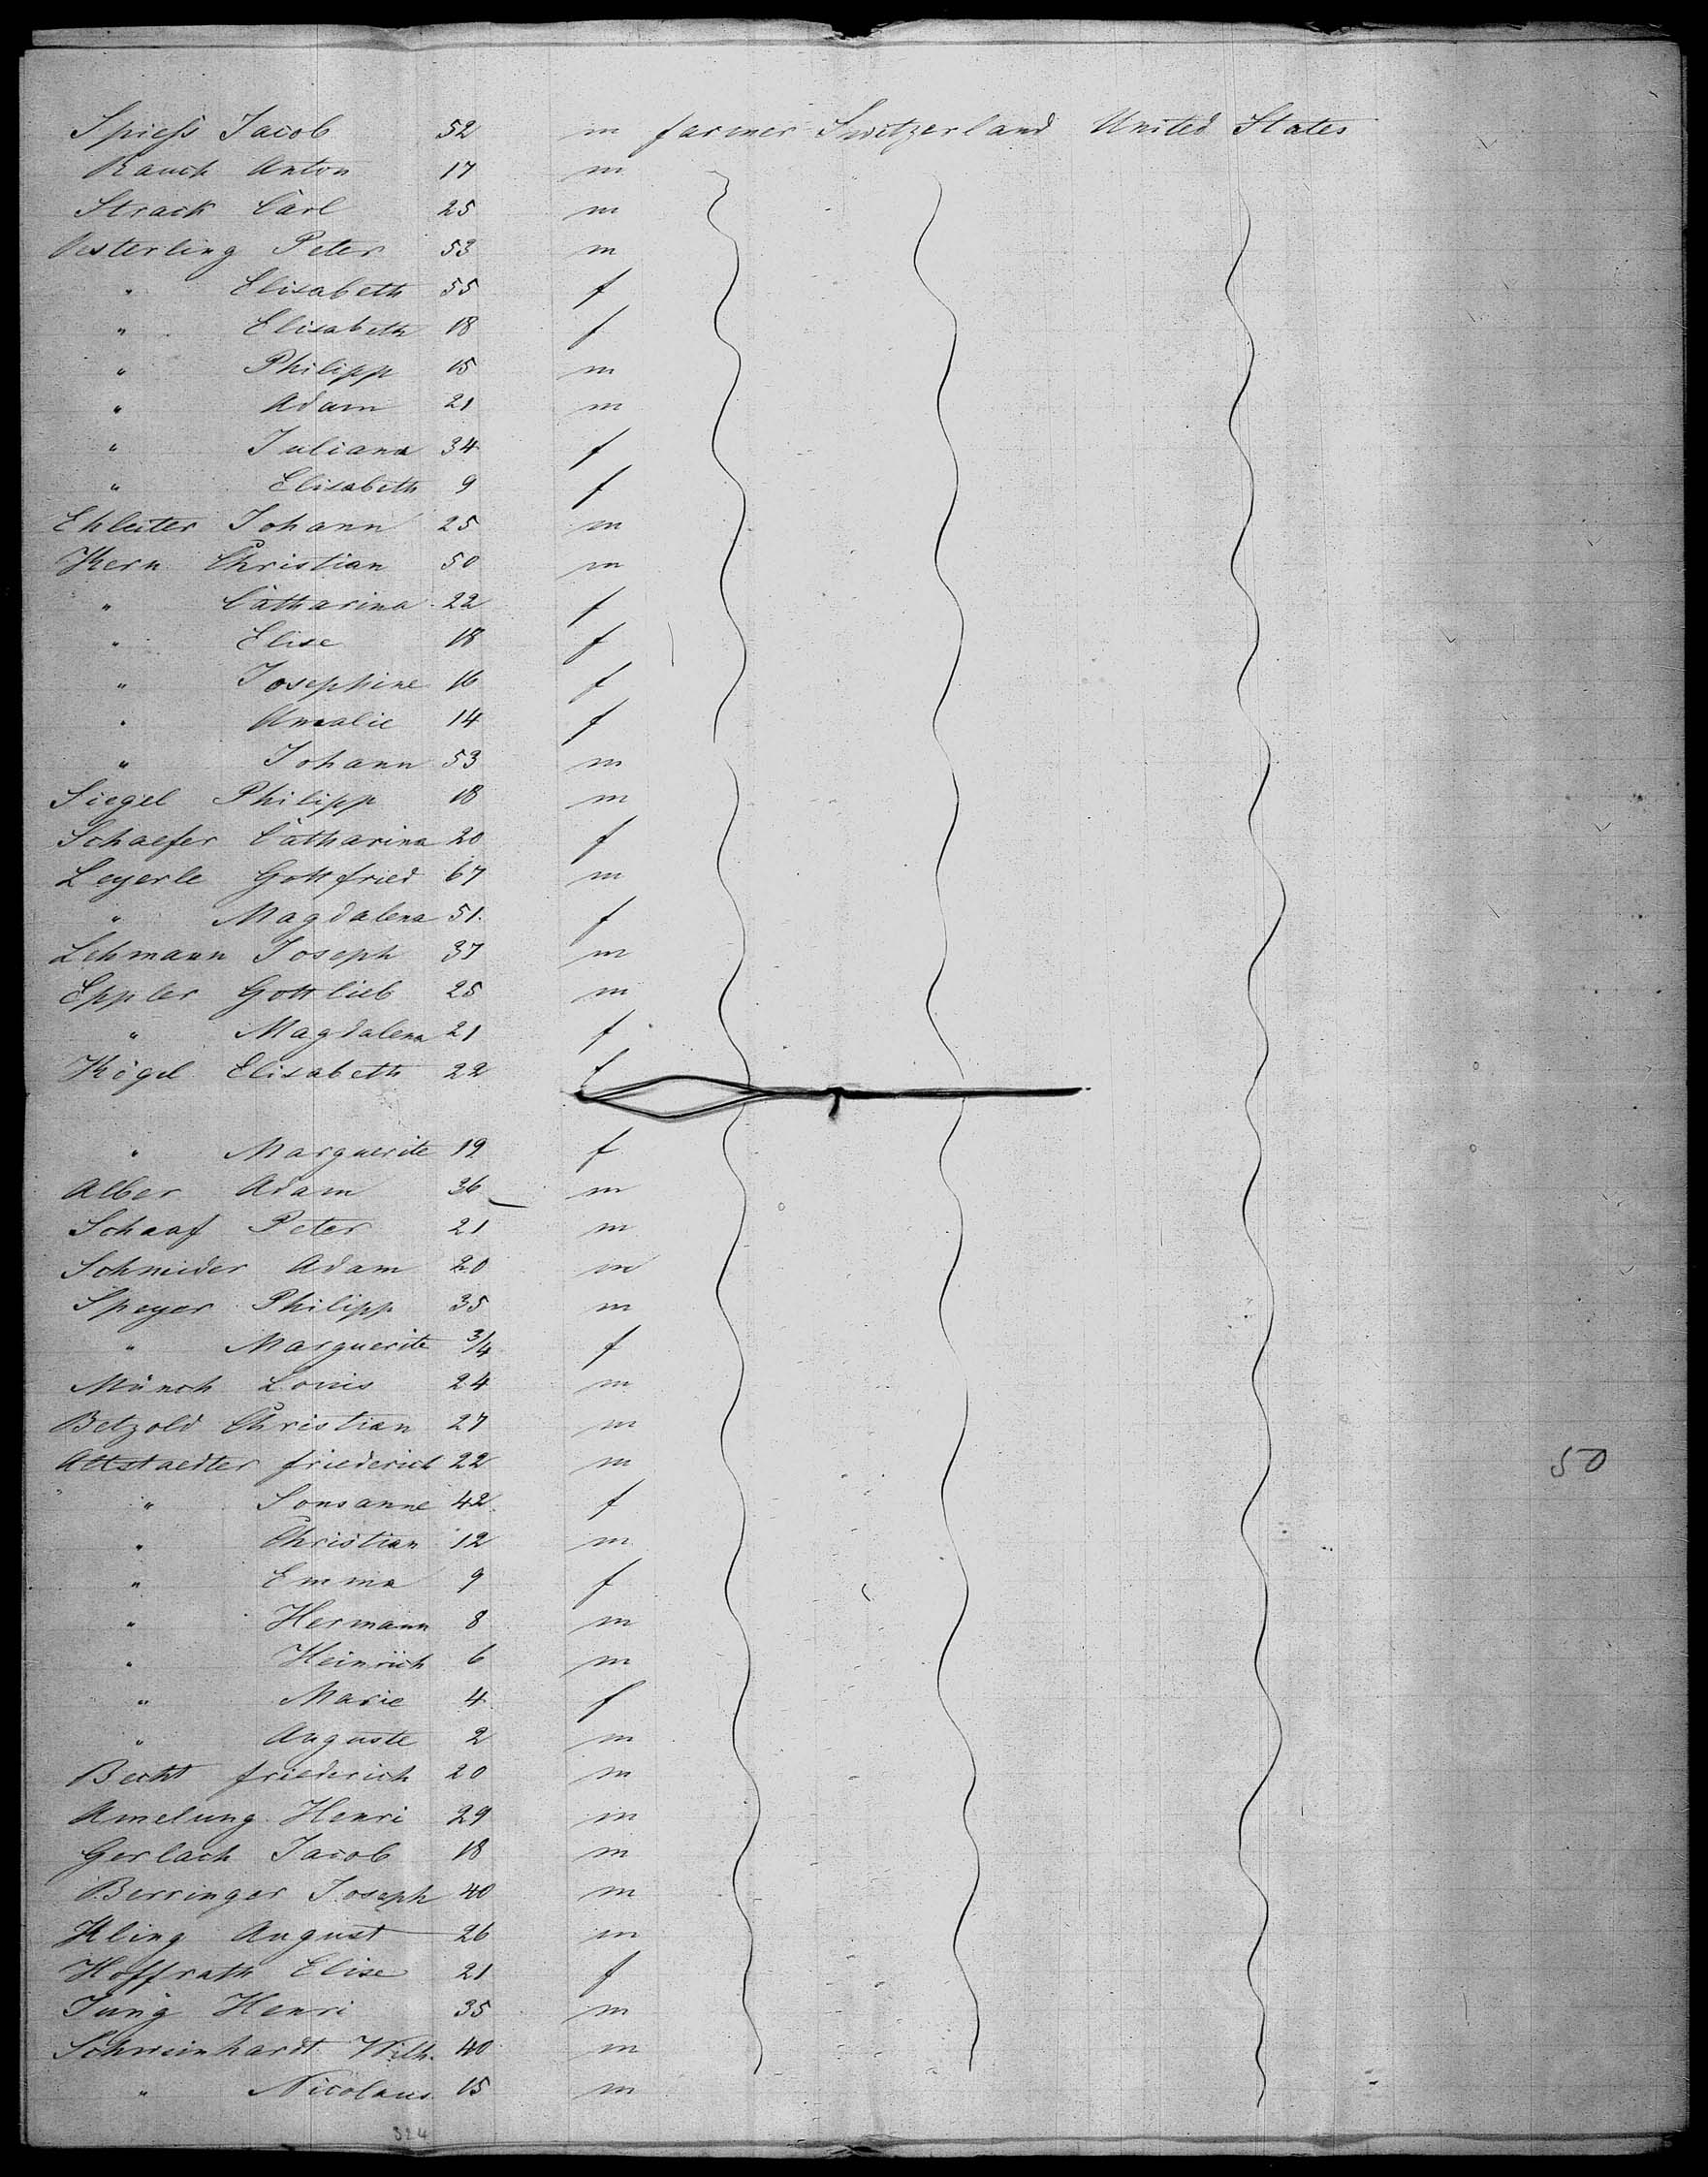 Spiess Jacob 52 m farmer Switzerland United States
Rauch Anton 17 m
Strack Carl 25 m
Oesterling Peter 53 m
" Elisabeth 55 f
" Elisabeth 18 f
" Philipp 15 m
" Adam 21 m
" Juliana 34 f
" Elisabeth 9 f
Ehleiter Johann 25 m
Kern Christian 50 m
" Catharina 22 f
" Elise 18 f
" Josephine 16 f
" Amalie 14 f
" Johann 53 m
Siegel Philipp 18 m
Schaefer Catharina 20 f
Leyerle Gottfried 67 m
" Magdalena 51 f
Lehmann Joseph 37 m
Eppler Gottlieb 25 m
" Magdalena 21 f
Kögel Elisabeth 22 f
" Marguerite 19 f
Alber Adam 36 m
Schaaf Peter 21 m
Schneider Adam 20 m
Speyer Philipp 35 m
" Marguerite 3/4 f
Münch Louis 24 m
Betzold Christian 27 m
Altstaedter friederich 22 m 50
" Sousanne 42 f
" Christian 12 m
" Emma 9 f
" Hermann 8 m
" Heinrich 6 m
" Marie 4 f
" Auguste 2 m
Becht friederich 20 m
Amelung Henri 29 m
Gerlach Jacob 18 m
Berringer Joseph 40 m
Kling August 26 m
Hoffrath Elise 21 f
Jung Henri 35 m
Schweinhardt Wilh. 40 m
" Nicolaus 15 m
324